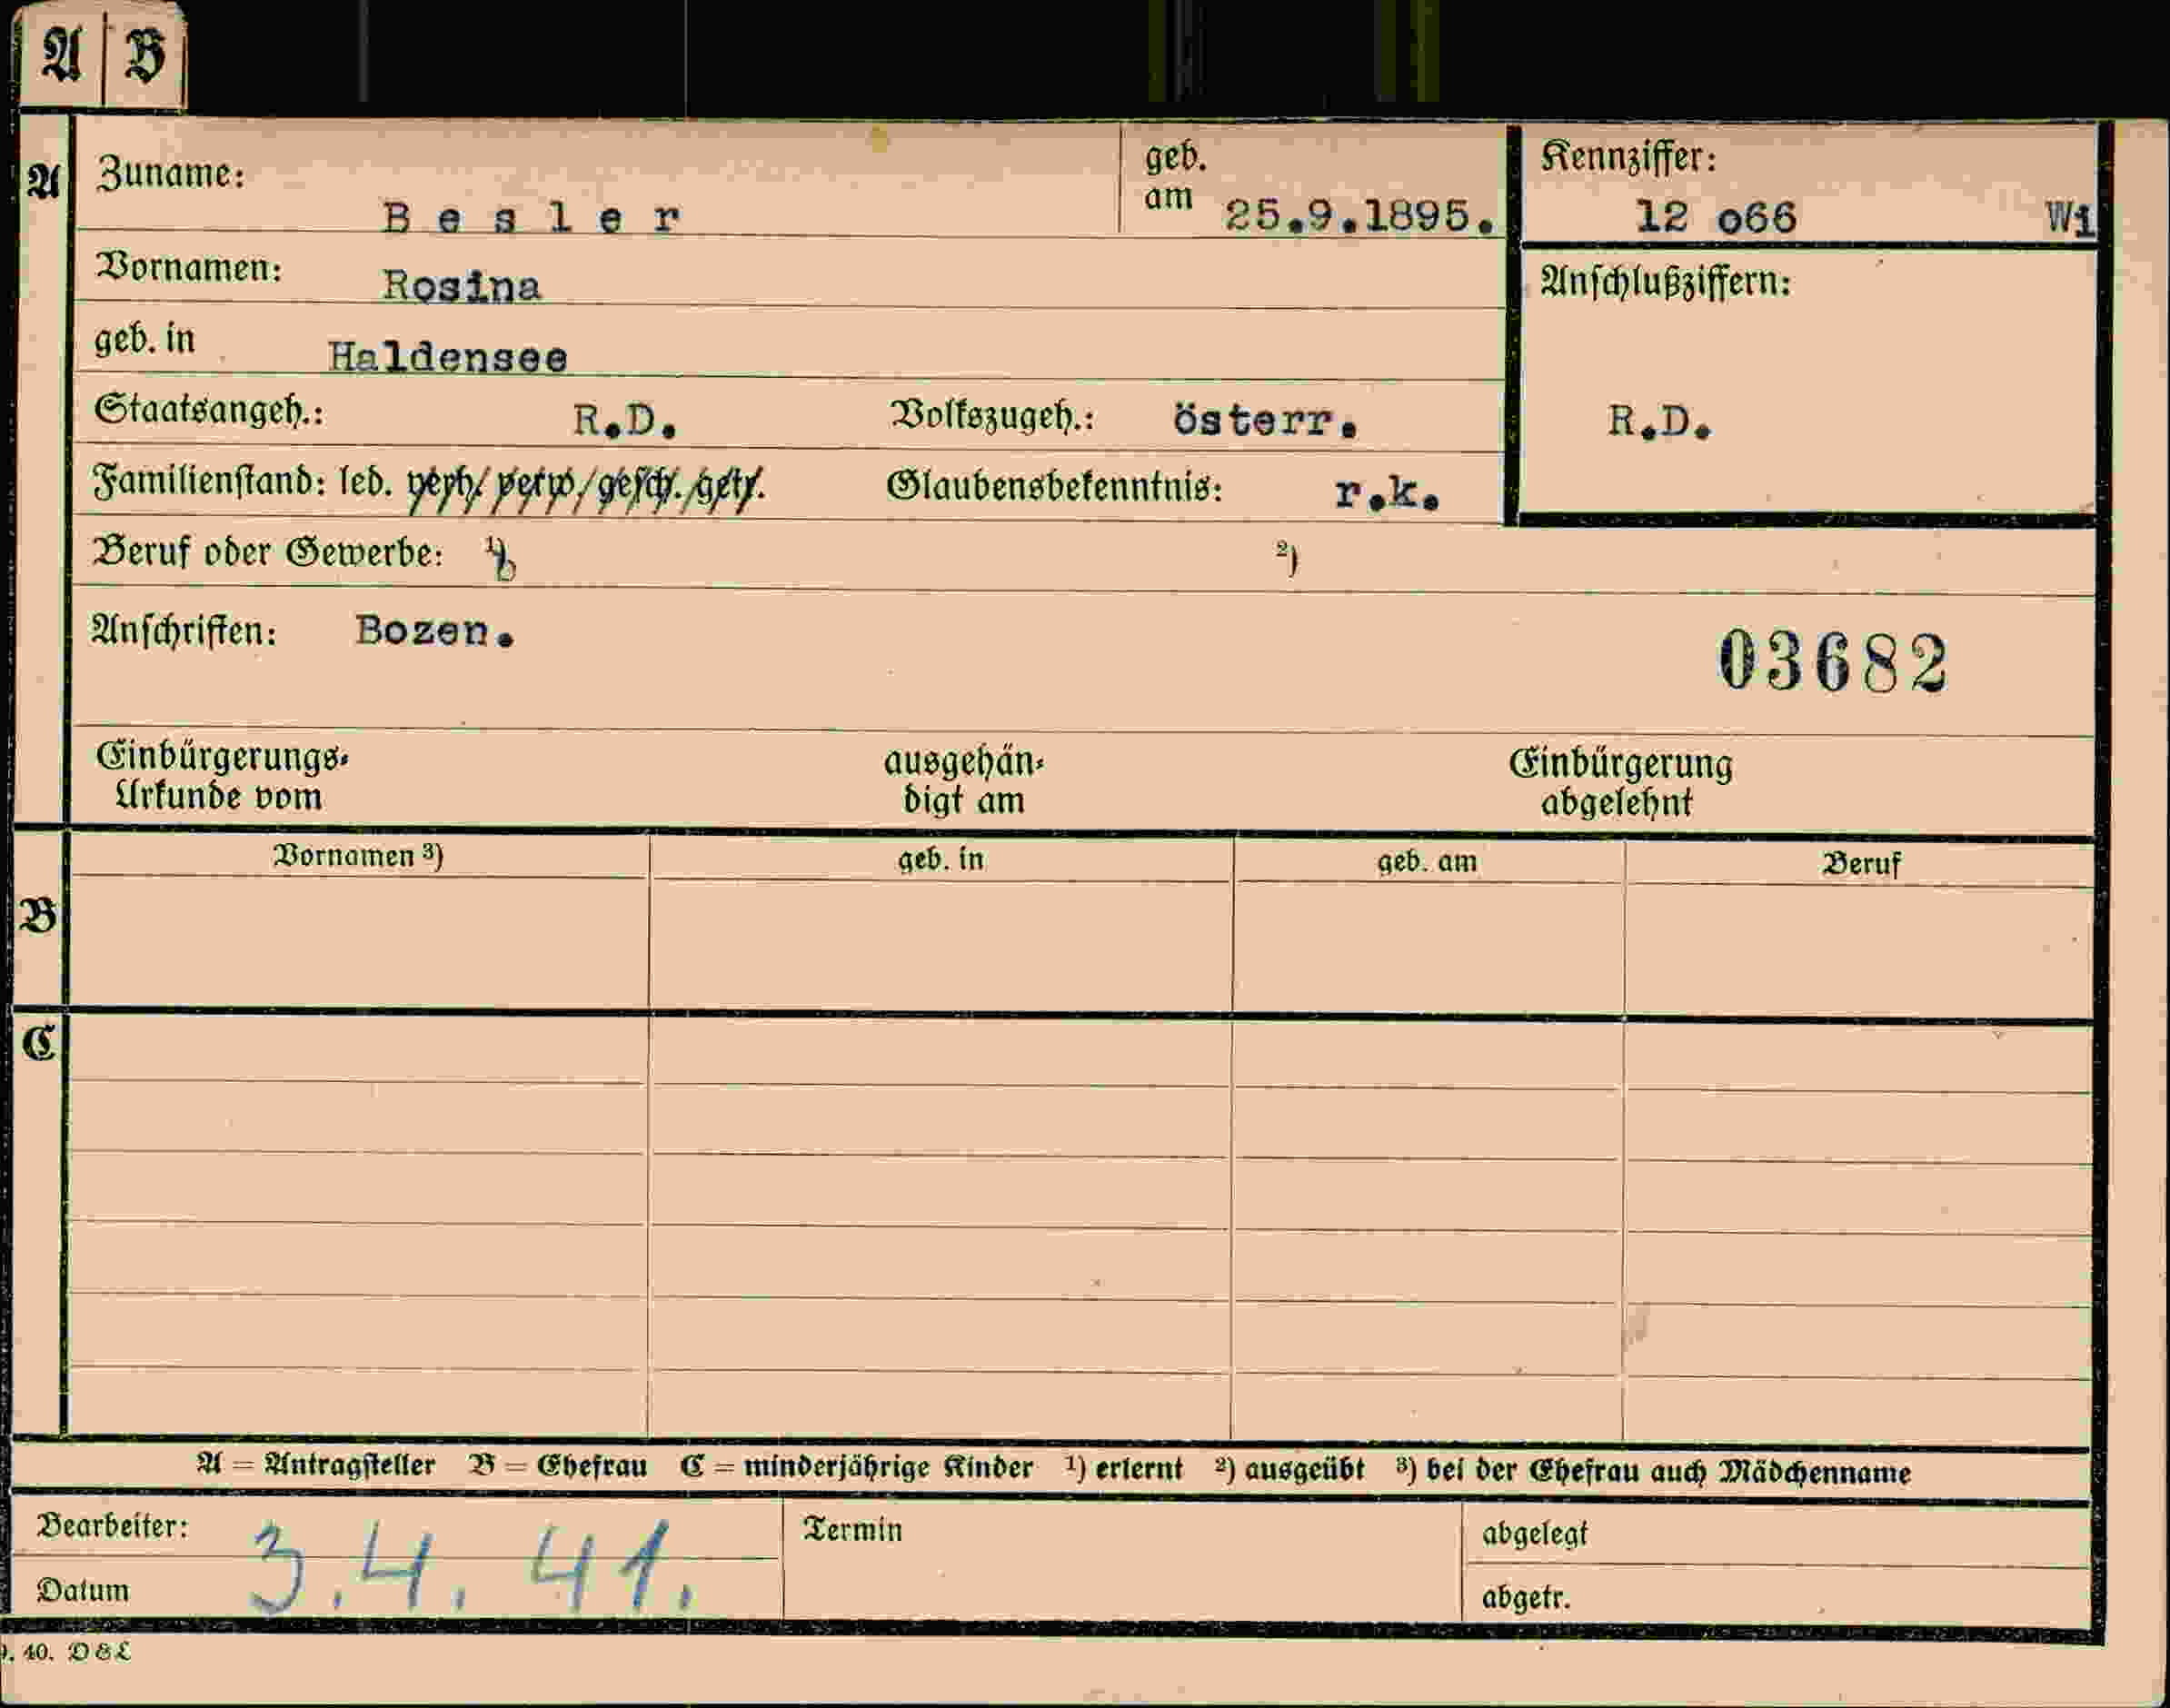 A B
A
Zuname: Besler
geb. am 25.9.1895.
Kennziffer: 12 o66 Wi
Vornamen: Rosina
Anschlußziffern:
geb. in Haldensee
Staatsangeh.: R.D. Volkszugeh.: österr. R.D.
Familienstand: led. verh./ verw./gesch./getr. Glaubensbekenntnis: r.k.
Beruf oder Gewerbe: 1) 2)
Anschriften: Bozen.
03682
Einbürgerungs-
Urkunde vom
ausgehän-
digt am
Einbürgerung
abgelehnt
Vornamen 3) geb. in geb. am Beruf
B
C
A = Antragsteller B = Ehefrau C = minderjährige Kinder 1) erlernt 2) ausgeübt 3) bei der Ehefrau auch Mädchenname
Bearbeiter: Termin abgelegt
Datum 3.4. 41. abgetr.
. 40. D&L